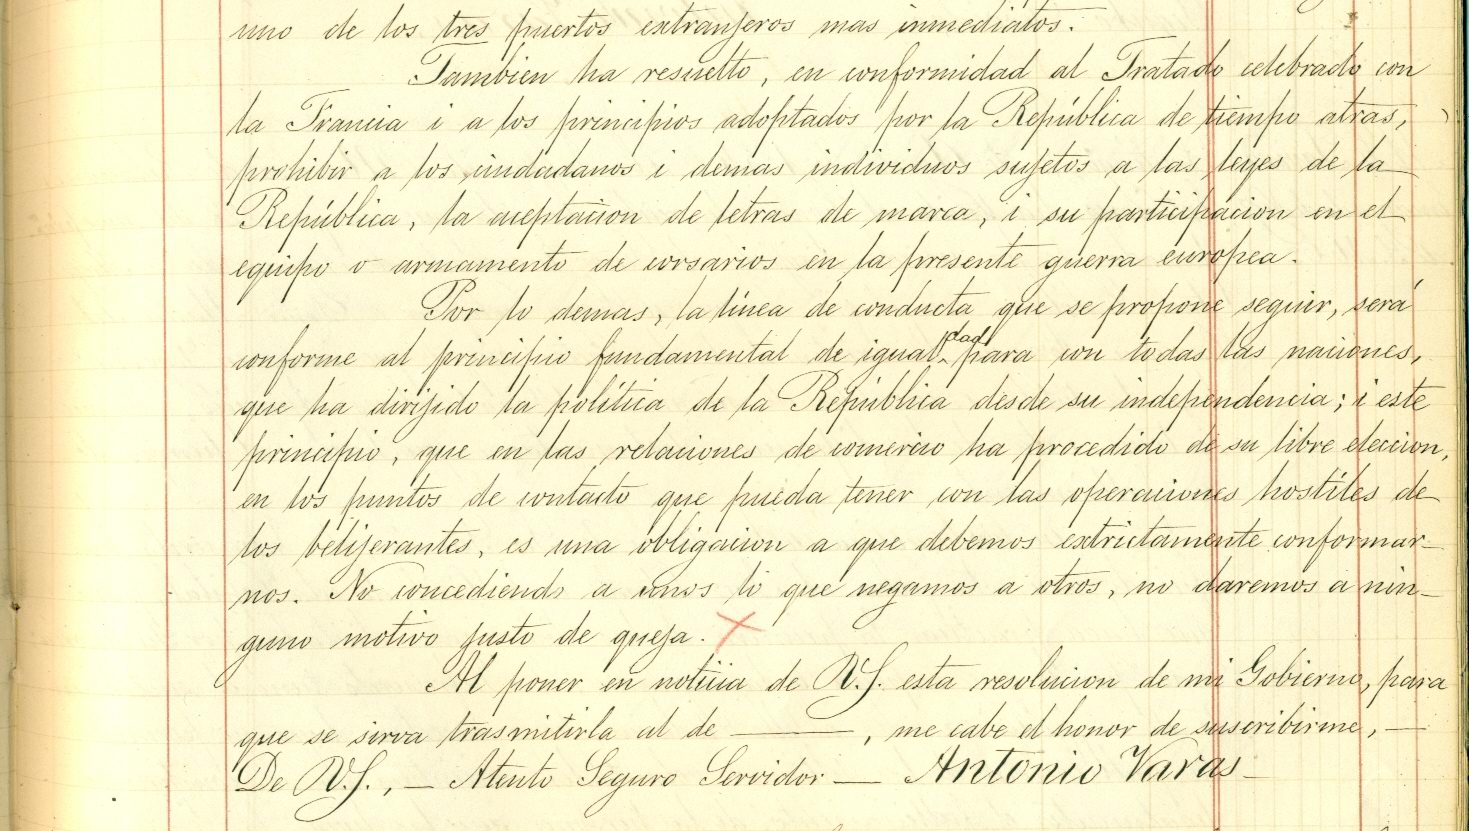 uno de los tres puertos extranjeros mas inmediatos.
Tambien ha resuelto, en conformidad al Tratado celebrado con
la Francia i a los principios adoptados por la República de tiempo atras,
prohibir a los ciudadanos i demas individuos sujetos a las leyes de la
República, la aceptacion de letras de marca, i su participacion en el
equipo o armamento de corsarios en la presente guerra europea.
Por lo demas, la línea de conducta que se propone seguir, será
conforme al principio fundamental de igualdad para con todas las naciones,
que ha dirijido la política de la República desde su independencia; i este
principio, que en las relaciones de comercio ha procedido de su libre eleccion,
en los puntos de contacto que pueda tener con las operaciones hostiles de
los belijerantes, es una obligacion a que debemos extrictamente conformar-
nos. No concediendo a unos lo que negamos a otros, no daremos a nin-
guno motivo justo de queja.
Al poner en noticia de V.S. esta resolucion de mi Gobierno, para
que se sirva trasmitirla al de ——— , me cabe el honor de suscribirme, —
De V.S., — Atento Seguro Servidor — Antonio Varas —